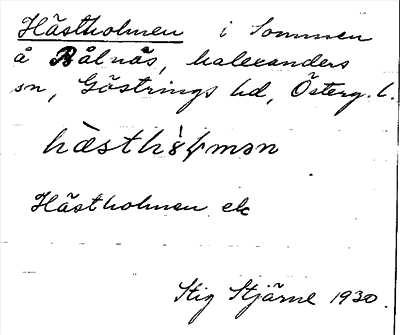 Hästholmen i Sommen
å Bålnäs, Malexanders
sn, Göstrings hd, Österg. l.
Hästholmen ek
Stig Stjärne 1930.